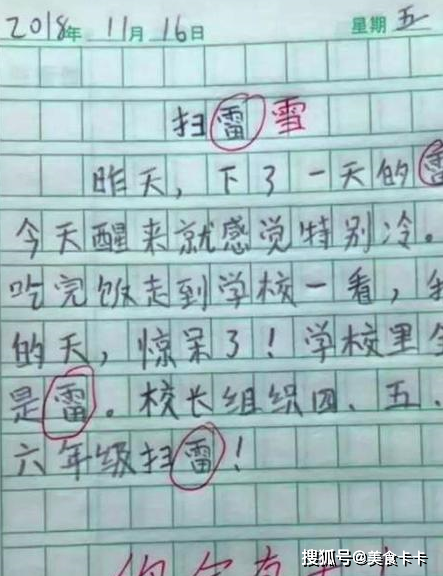 2018年 11月 16日 星期 五
扫雷雪
昨天，下了一天的雷
今天醒来就感觉特别冷。
吃完饭走到学校一看，我
的天，惊呆了！学校里全
是雷。校长组织四、五、
六年级扫雷！
搜狐号@美食卡卡